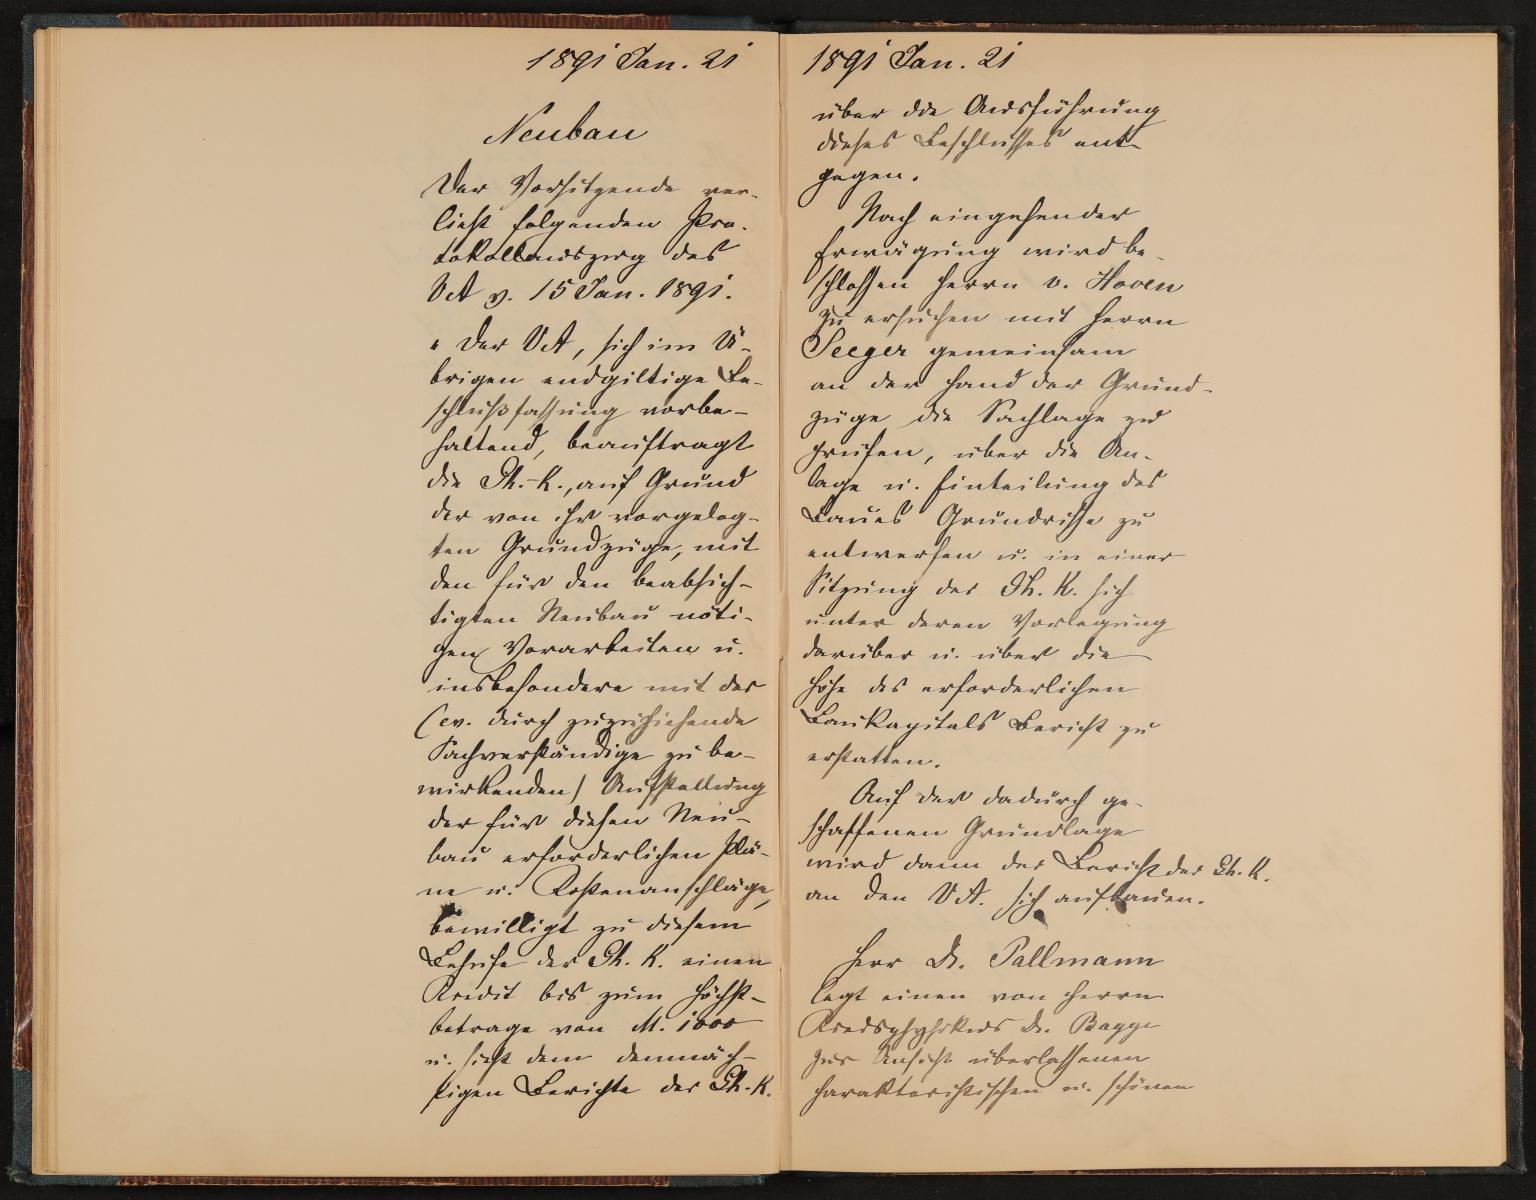 1891 Jan. 21
Neubau
Der Vorsitzende ver-
liest folgenden Pro-
tokollauszug des
VA v. 15 Jan. 1891.
„Der VA, sich im Ü-
brigen endgiltige Be-
schlußfassung vorbe-
haltend, beauftragt
die Th.-K., auf Grund
der von ihr vorgeleg-
ten Grundzüge, mit
den für den beabsich-
tigten Neubau nöti-
gen Vorarbeiten u.
insbesondere mit der
(ev. durch zuzuziehende
Sachverständige zu be-
wirkenden) Aufstellung
der für diesen Neu-
bau erforderlichen Plä-
ne u. Kostenanschläge,
bewilligt zu diesem
Behufe der Th. K. einen
Kredit bis zum Höchst-
betrage von M. 1000
u. sieht dem demnäch-
stigen Berichte der Th. K.
1891 Jan. 21
über die Ausführung
dieses Beschlusses ent-
gegen.
Nach eingehender
Erwägung wird be-
schlossen Herrn v. Hoven
zu ersuchen mit Herrn
Seeger gemeinsam
an der Hand der Grund-
züge die Sachlage zu
prüfen, über die An-
lage u. Einteilung des
Baues Grundrisse zu
entwerfen u. in einer
Sitzung der Th. K. sich
unter deren Vorlegung
darüber u. über die
Höhe des erforderlichen
Baukapitals Bericht zu
erstatten.
Auf der dadurch ge-
schaffenen Grundlage
wird dann der Bericht der Th. K.
an den VA. sich aufbauen.
Herr Dr. Pallmann
legt einen von Herrn
Kreisphysikus Dr. Bagge
zur Ansicht überlassenen
charakteristischen u. schönen